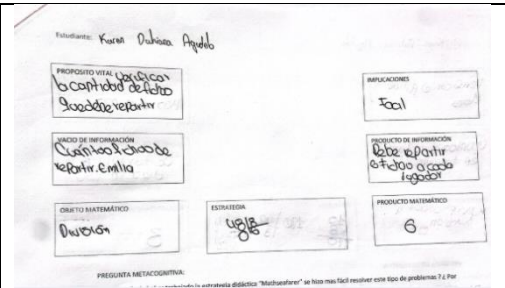 Estudiante: Karen Dahiana Agudelo
PROPOSITO VITAL Verificar
la cantidad de fichas
que debe repartir
IMPLICACIONES
VACIO DE INFORMACIÓN
Cuántas fichas debe
repartir Emilia
PRODUCTO DE INFORMACIÓN
Debe repartir
6 fichas a cada
jugador
OBJETO MATEMÁTICO
División
ESTRATEGIA
48/8
PRODUCTO MATEMÁTICO
6
PREGUNTA METACOGNITIVA:
la estrategia didáctica "Mathseafarer" se hizo mas fácil resolver este tipo de problemas ? ¿ Por